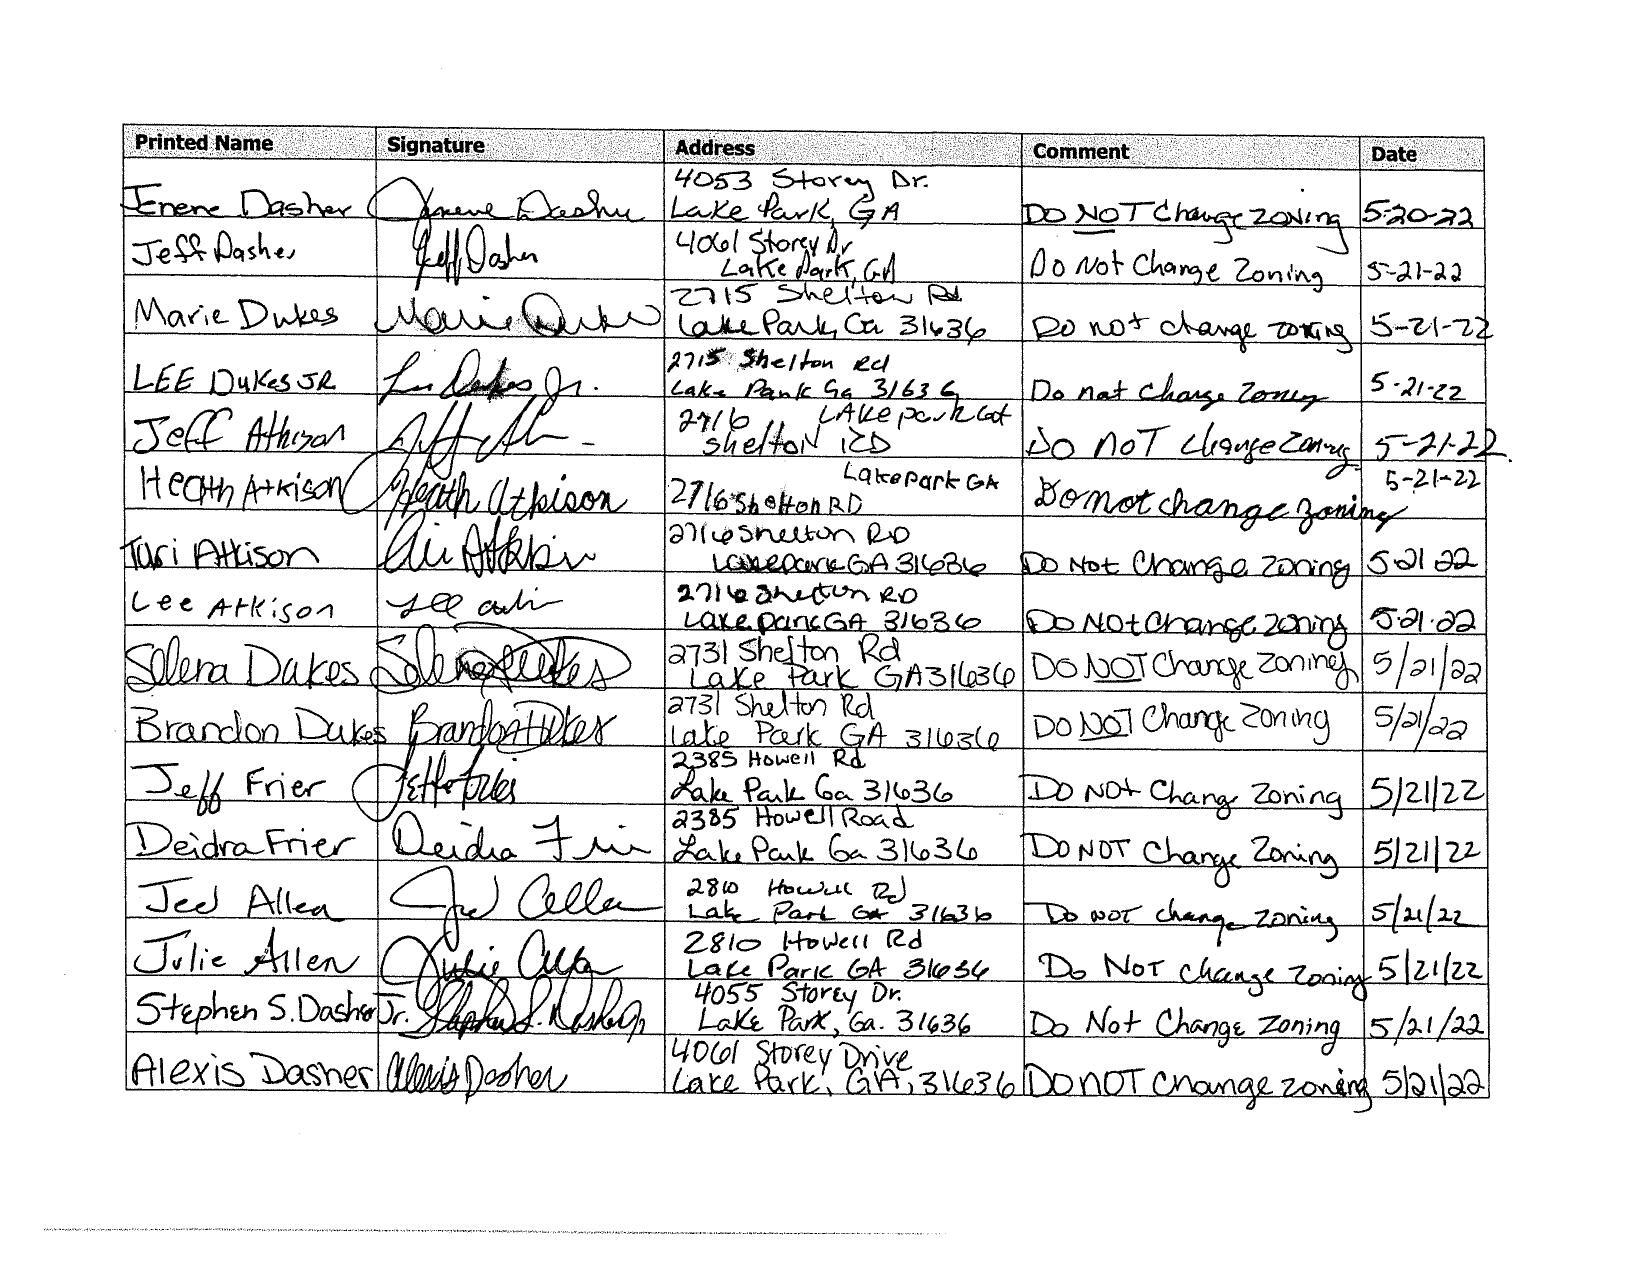 Printed Name Signature Address Comment Date
4053 Storey Dr.
Jenene Dasher Jenene Dasher Lake Park, GA DO NOT Change Zoning 5-20-22
4061 Storey Dr
Jeff Dasher Jeff Dasher Lake Park, GA Do Not Change Zoning 5-21-22
2715 Shelton Rd.
Marie Dukes Marie Dukes Lake Park, Ga 31636 Do not change zoning 5-21-22
2715 Shelton Rd
LEE DUKES JR Lee Dukes Jr. Lake Park Ga 31636 Do not Change Zoning 5-21-22
2716 LAKE park
Jeff Atkison Shelton RD DO NOT change Zoning 5-21-22
Lake park GA 5-21-22
Heath Atkison Heath Atkison 2716 Shelton RD Do not change zoning
2716 Shelton RD
Tari Atkison Lake park GA 31636 DO Not Change Zoning 5 21 22
2716 Shelton RD
Lee Atkison Lake park GA 31636 DO NOt Change zoning 5.21.22
2731 Shelton Rd
Selena Dukes Selena Dukes Lake Park GA 31636 DO NOT Change Zoning 5/21/22
2731 Shelton Rd
Brandon Dukes Brandon Dukes Lake Park GA 31636 DO NOT Change Zoning 5/21/22
2385 Howell Rd
Jeff Frier Lake Park Ga 31636 DO NOt Change Zoning 5/21/22
2385 Howell Road
Deidra Frier Deidra Frier Lake Park Ga 31636 DO NOT Change Zoning 5/21/22
2810 Howell Rd
Jed Allen Jed Allen Lake Park GA 31636 Do NOT change zoning 5/21/22
2810 Howell Rd
Julie Allen Julie Allen Lake Park GA 31636 Do NOT change zoning 5/21/22
4055 Storey Dr.
Stephen S. Dasher Jr. Stephen S. Dasher Jr Lake Park, Ga. 31636 Do Not Change Zoning 5/21/22
4061 Storey Drive
Alexis Dasher Alexis Dasher Lake Park, GA, 31636 DO NOT change zoning 5/21/22